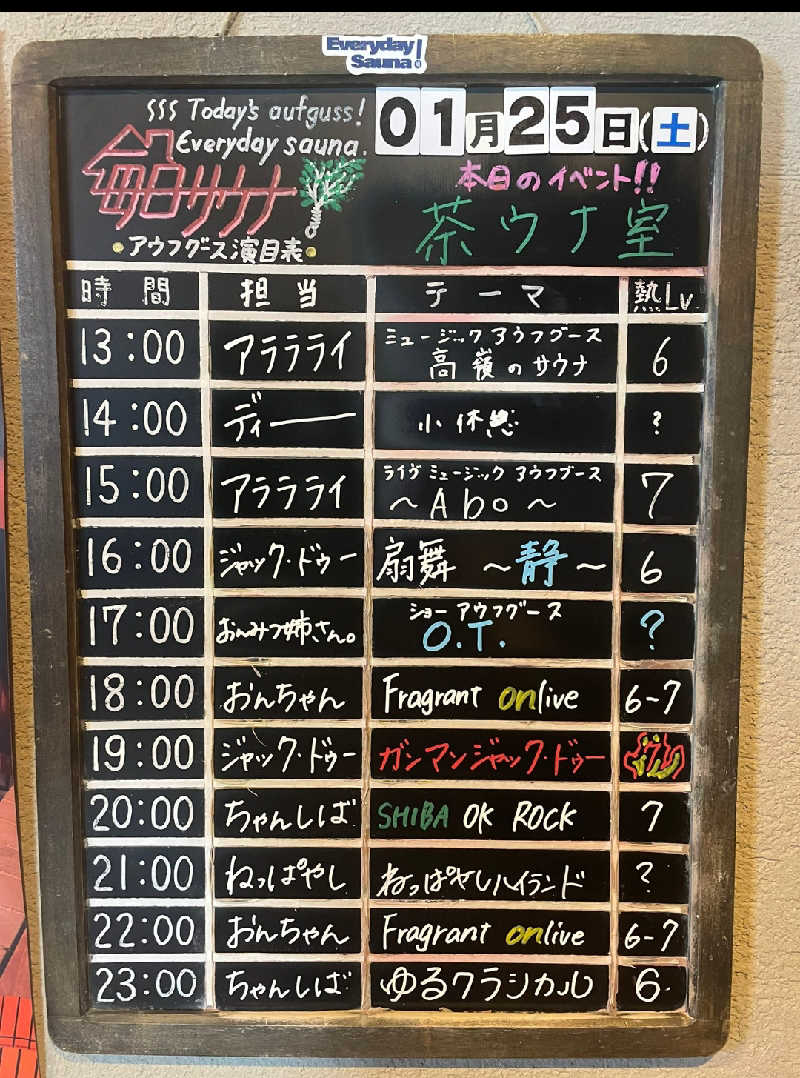 Everyday Sauna!
Today's aufguss!
Everyday sauna.
毎日サウナ
アウフグース演目表
01月25日(土)
本日のイベント!!
茶ウナ室
時間 担当 テーマ 熱Lv.
13:00 アラララライ ミュージックアウフグース
高嶺のサウナ 6
14:00 ディー 小休憩 ?
15:00 アララライ ライヴミュージックアウフグース
~Abo~ 7
16:00 ジャック・ドゥー 扇舞 ~静~ 6
17:00 おみつ姉さん。 ショーアウフグース
O.T. ?
18:00 おんちゃん Fragrant onlive 6-7
19:00 ジャック・ドゥー ガンマンジャック・ドゥー
20:00 ちゃんしば SHIBA OK ROCK 7
21:00 ねっぱやし ねっぱやしハイランド ?
22:00 おんちゃん Fragrant onlive 6-7
23:00 ちゃんしば ゆるクラシカル 6